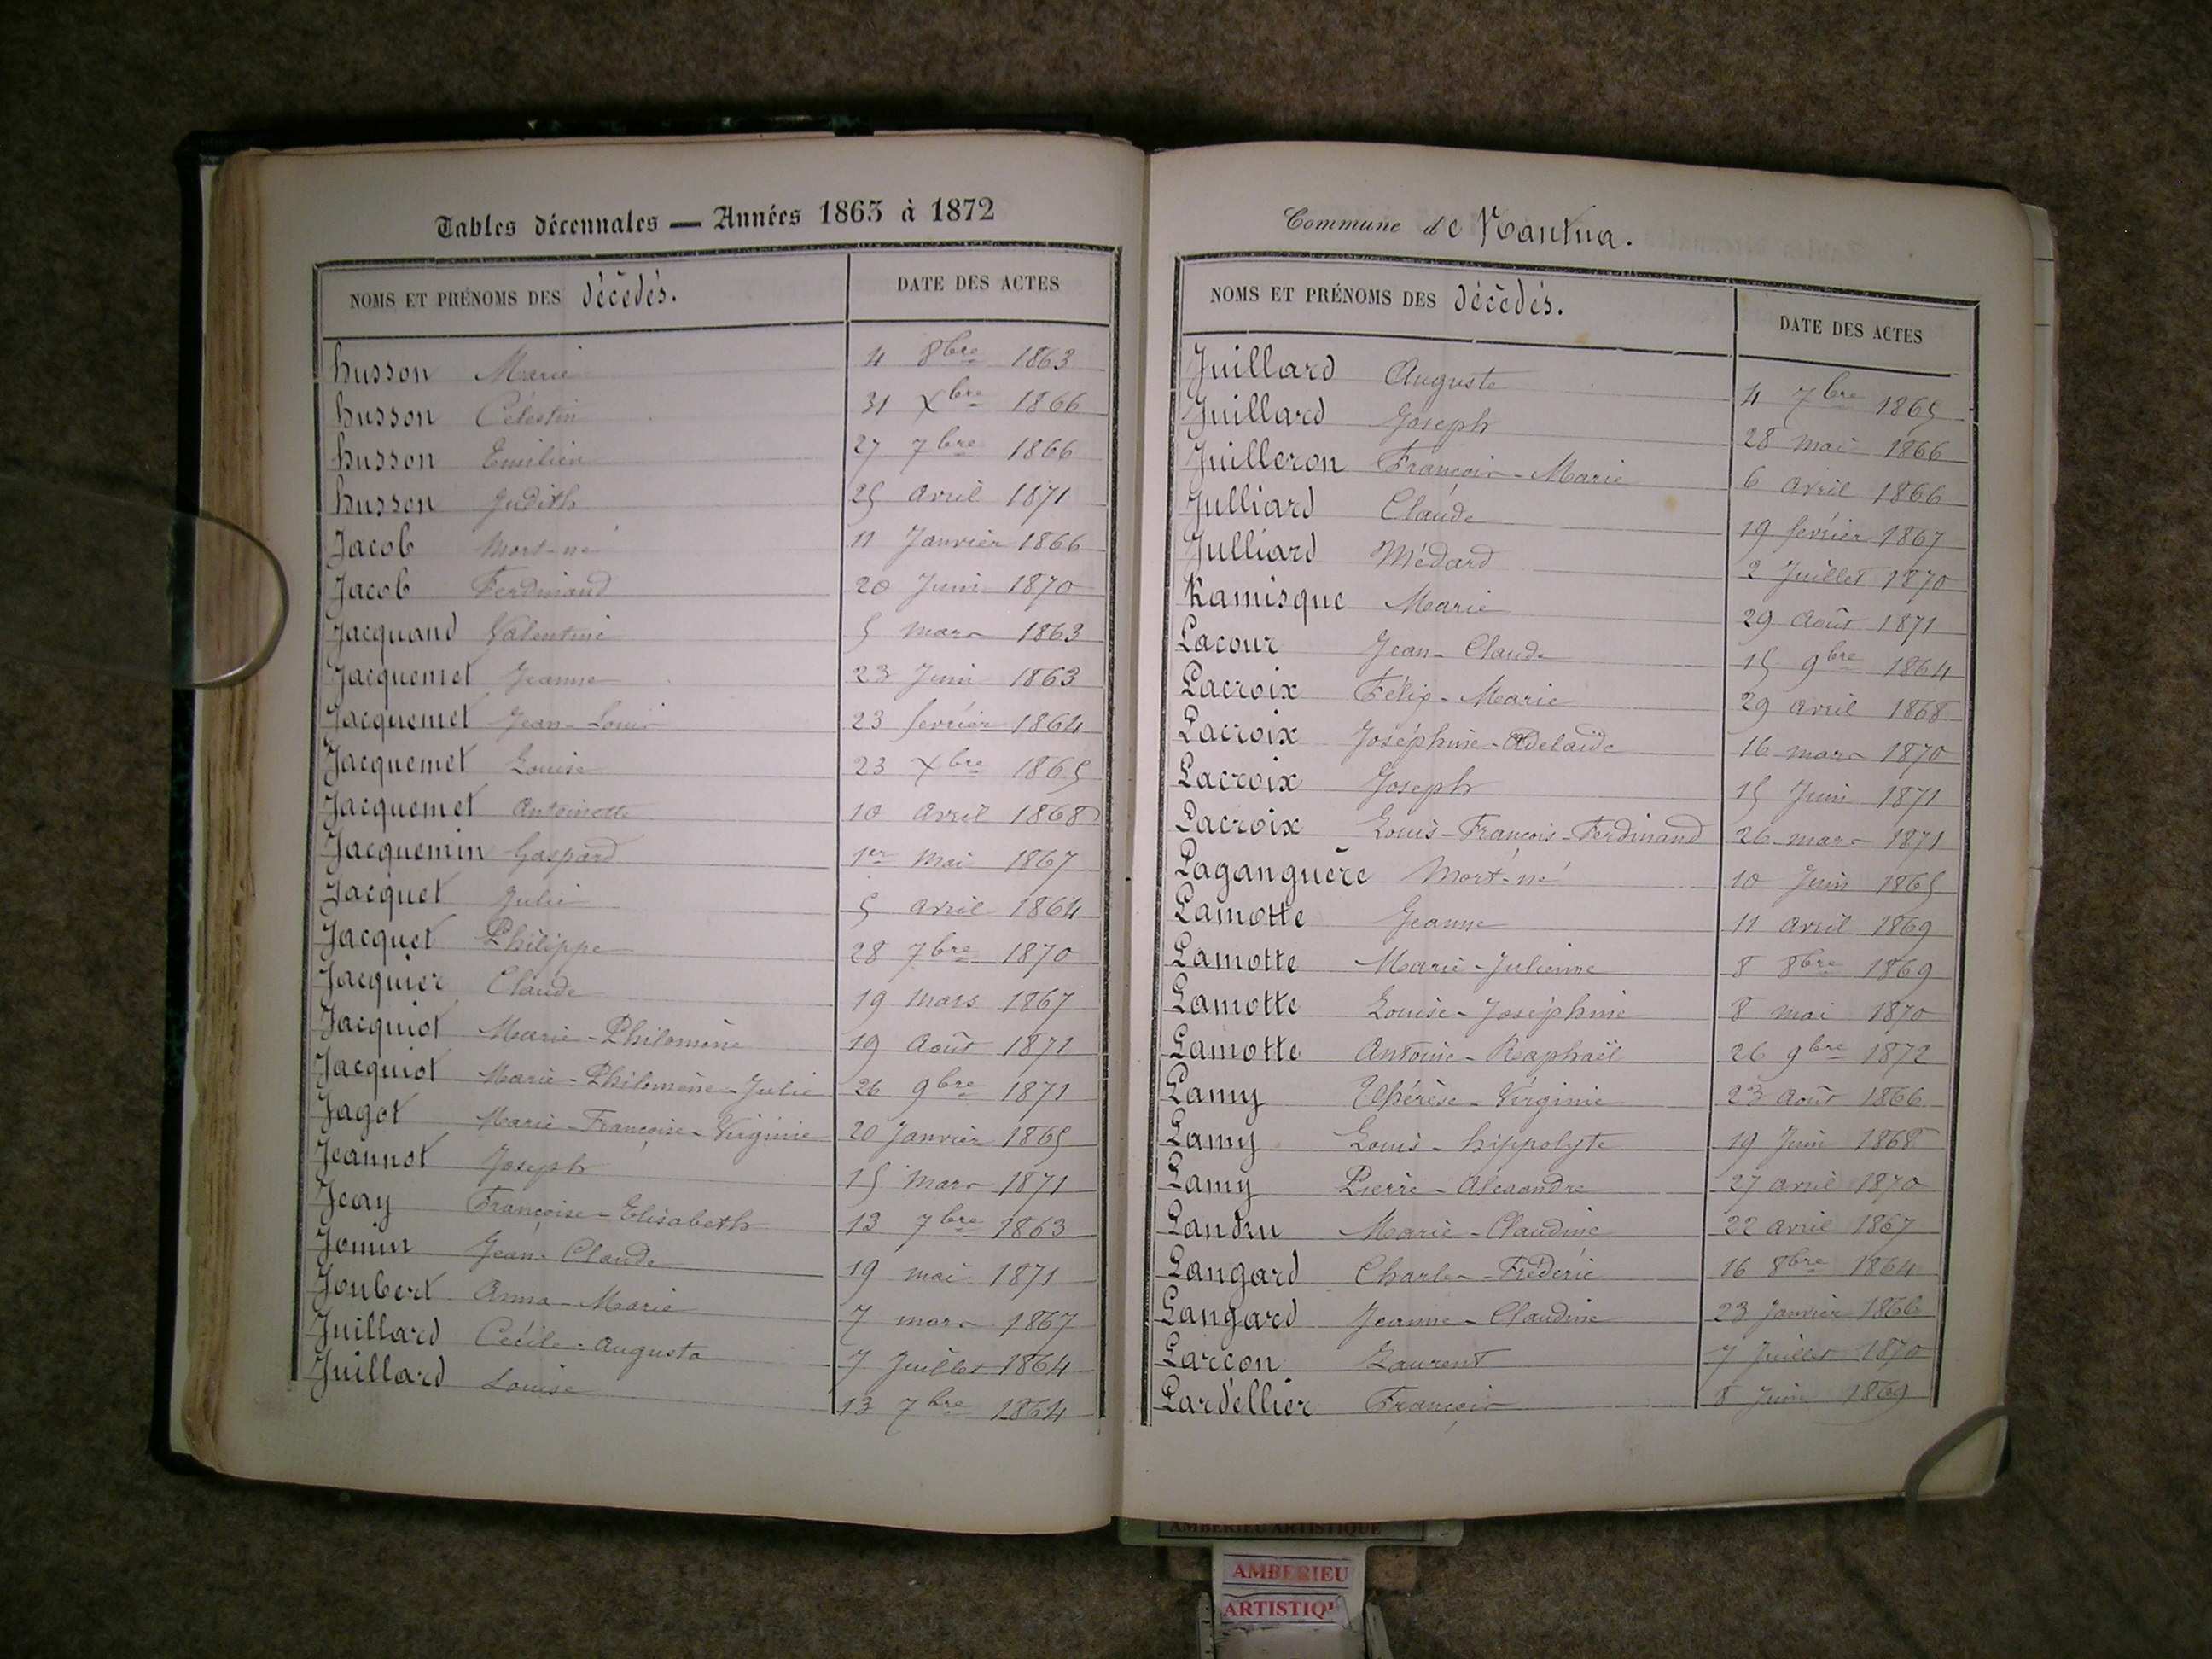 Tables décennales — Années 1863 à 1872
NOMS ET PRÉNOMS DES décédés. DATE DES ACTES
husson Marie 4 8bre 1863
husson Célestin 31 Xbre 1866
husson Emilien 27 7bre 1866
husson Judith 25 avril 1871
Jacob Mort-né 11 Janvier 1866
Jacob Ferdinand 20 Juin 1870
Jacquand Valentine 5 mars 1863
Jacquemet Jeanne 23 Juin 1863
Jacquemet Jean-Louis 23 février 1864
Jacquemet Louise 23 Xbre 1865
Jacquemet Antoinette 10 avril 1868
Jacquemin Gaspard 1er Mai 1867
Jacquet Julie 5 avril 1864
Jacquet Philippe 28 7bre 1870
Jacquier Claude 19 mars 1867
Jacquiot Marie-Philomène 19 Août 1871
Jacquiot Marie-Philomène-Julie 26 9bre 1871
Jagot Marie-Françoise-Virginie 20 Janvier 1865
Jeannot Joseph 15 Mars 1871
Jeay Françoise-Elisabeth 13 7bre 1863
Jomin Jean-Claude 19 mai 1871
Joubert Anna-Marie 7 mars 1867
Juillard Cécile-Augusta 7 Juillet 1864
Juillard Louise 13 7bre 1864
Commune de Nantua.
NOMS ET PRÉNOMS DES décédés. DATE DES ACTES
Juillard Auguste 4 7bre 1865
Juillard Joseph 28 mai 1866
Juilleron François-Marie 6 avril 1866
Julliard Claude 19 février 1867
Julliard Médard 2 Juillet 1870
Kamisque Marie 29 Août 1871
Lacour Jean-Claude 15 9bre 1864
Lacroix Félix-Marie 29 avril 1868
Lacroix Joséphine-Adelaïde 16 mars 1870
Lacroix Joseph 15 Juin 1871
Lacroix Louis-François-Ferdinand 26 mars 1871
Laganguère Mort-né 10 Juin 1865
Lamotte Jeanne 11 avril 1869
Lamotte Marie-Julienne 8 8bre 1869
Lamotte Louise-Joséphine 8 mai 1870
Lamotte Antoine-Raphaël 26 9bre 1872
Lamy Thérèse-Virginie 23 Août 1866
Lamy Louis-hippolyte 19 Juin 1868
Lamy Pierre-Alexandre 27 avril 1870
Landru Marie-Claudine 22 avril 1867
Langard Charles-Frédéric 16 8bre 1864
Langard Jeanne-Claudine 23 Janvier 1866
Larcon Laurent 7 Juillet 1870
Lardellier François 8 Juin 1869
AMBERIEU ARTISTIQUE
AMBERIEU
ARTISTIQU